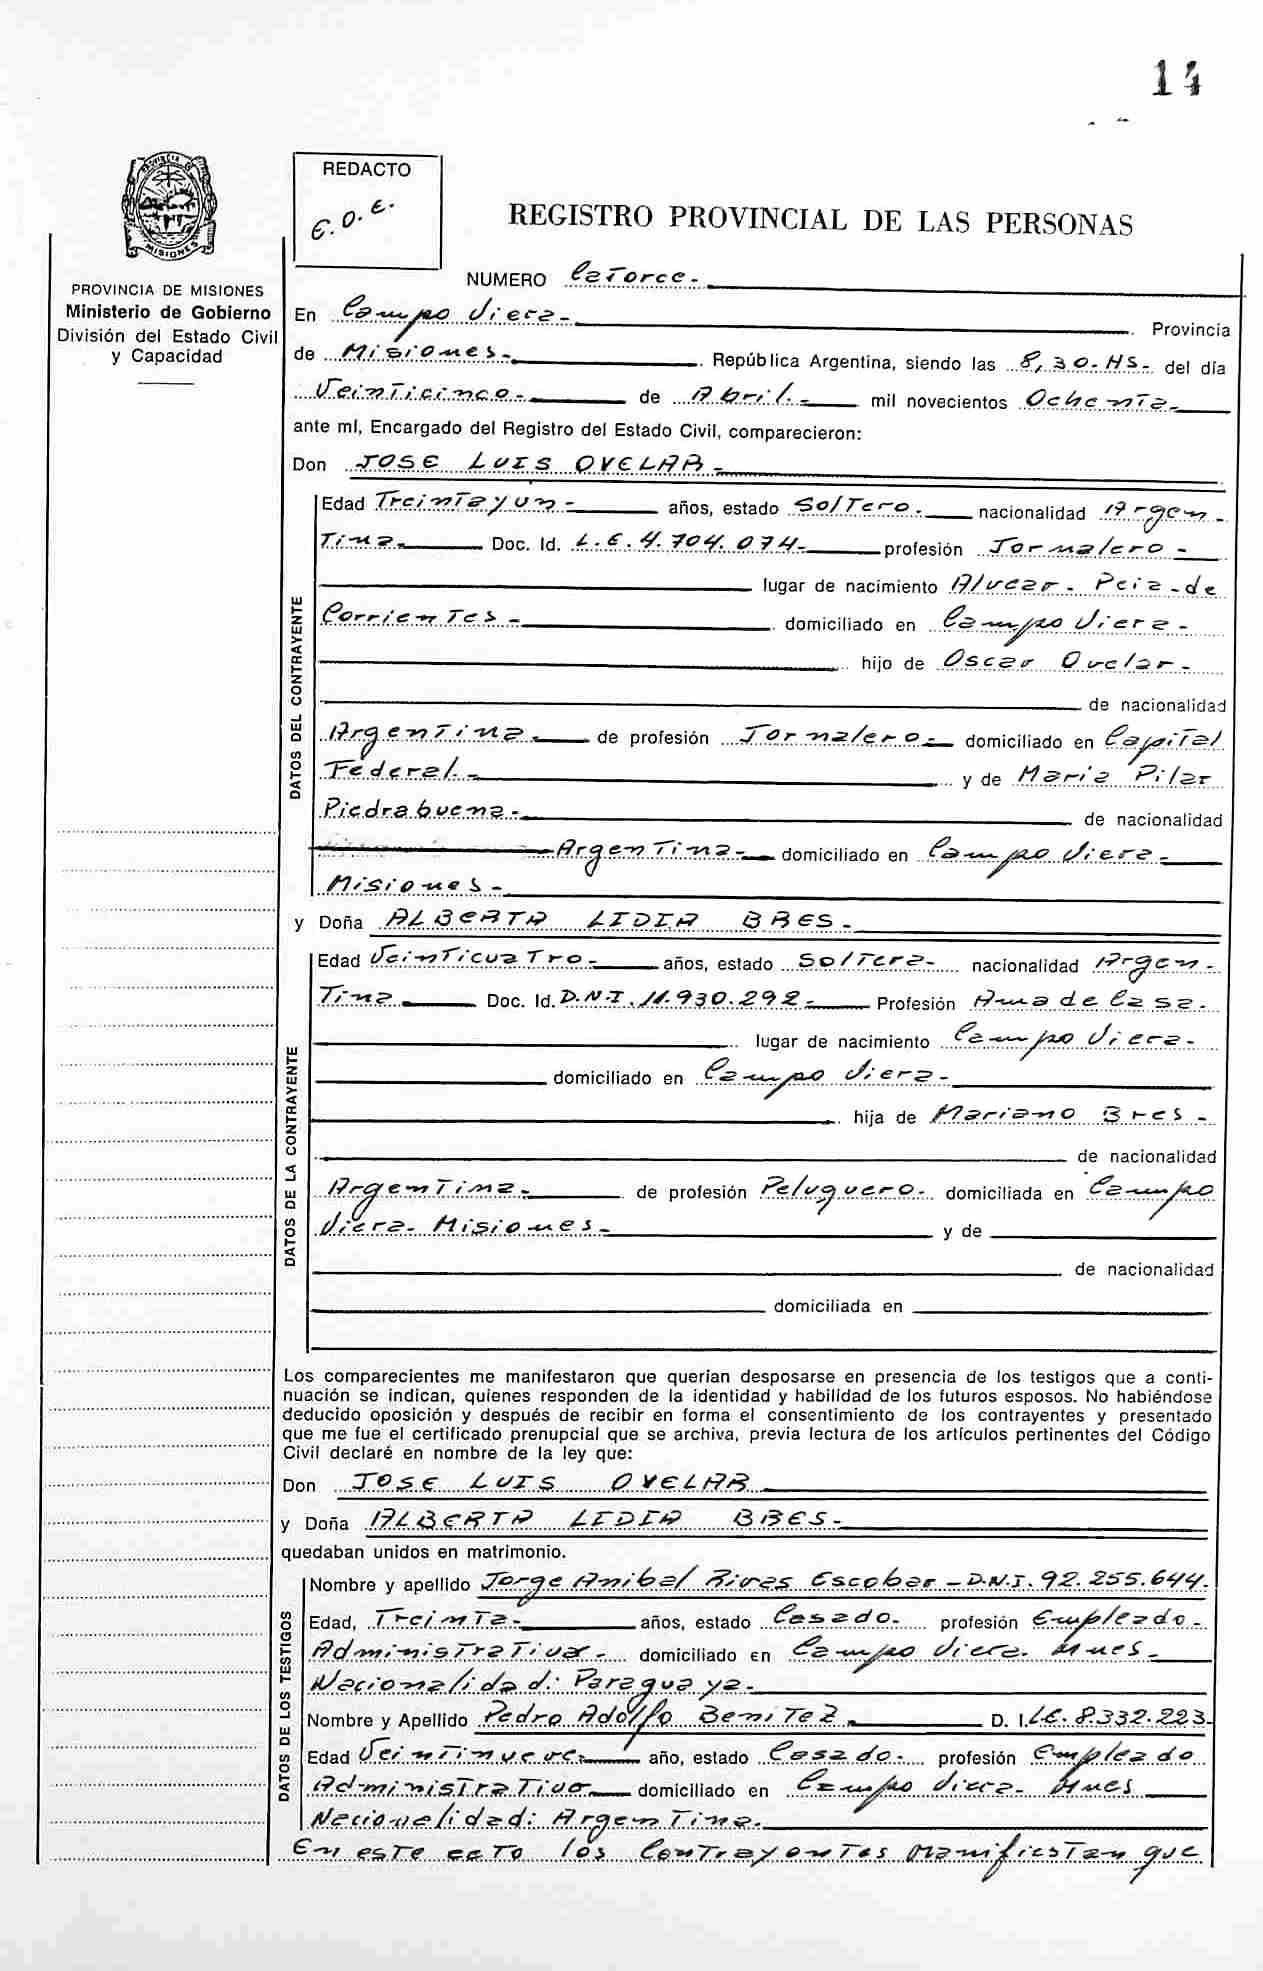 14
PROVINCIA DE
MISIONES
REDACTO
E.O.E.
REGISTRO PROVINCIAL DE LAS PERSONAS
PROVINCIA DE MISIONES
Ministerio de Gobierno
División del Estado Civil
y Capacidad
NUMERO Catorce.-
En Campo Viera- Provincia
de Misiones.- República Argentina, siendo las 8,30.HS.- del día
Veinticinco.- de Abril.- mil novecientos Ochenta-
ante mí, Encargado del Registro del Estado Civil, comparecieron:
Don JOSE LUIS OVELAR-
DATOS DEL CONTRAYENTE
Edad Treinta y un- años, estado Soltero.- nacionalidad Argen-
Tina.- Doc. Id. L.E.4.704.074- profesión Jornalero-
lugar de nacimiento Alvear- Pcia-de
Corrientes- domiciliado en Campo Viera-
hijo de Oscar Ovelar-
de nacionalidad
Argentina.- de profesión Jornalero.- domiciliado en Capital
Federal.- y de Maria Pilar
Piedrabuena- de nacionalidad
Argentina- domiciliado en Campo Viera-
Misiones-
y Doña ALBERTA LIDIA BRES.-
DATOS DE LA CONTRAYENTE
Edad Veinticuatro- años, estado Soltera- nacionalidad Argen-
Tina- Doc. Id. D.N.I.11.930.292- Profesión Ama de Casa.
lugar de nacimiento Campo Viera-
domiciliado en Campo Viera-
hija de Mariano Bres-
de nacionalidad
Argentina.- de profesión Peluquero.- domiciliada en Campo
Viera- Misiones- y de
de nacionalidad
domiciliada en
Los comparecientes me manifestaron que querían desposarse en presencia de los testigos que a conti-
nuación se indican, quienes responden de la identidad y habilidad de los futuros esposos. No habiéndose
deducido oposición y después de recibir en forma el consentimiento de los contrayentes y presentado
que me fue el certificado prenupcial que se archiva, previa lectura de los artículos pertinentes del Código
Civil declaré en nombre de la ley que:
Don JOSE LUIS OVELAR
y Doña ALBERTA LIDIA BRES-
quedaban unidos en matrimonio.
DATOS DE LOS TESTIGOS
Nombre y apellido Jorge Anibal Rivas Escobar-D.N.I.92.255.644.
Edad, Treinta- años, estado Casado- profesión Empleado-
Administrativo.- domiciliado en Campo Viera. Mnes-
Nacionalidad: Paraguaya-
Nombre y Apellido Pedro Adolfo Benitez- D. I. L.E. 8.332.223-
Edad Veintinueve- año, estado Casado- profesión Empleado
Administrativo- domiciliado en Campo Viera- Mnes
Nacionalidad: Argentina.
En este acto los Contrayentes Manifiestan que